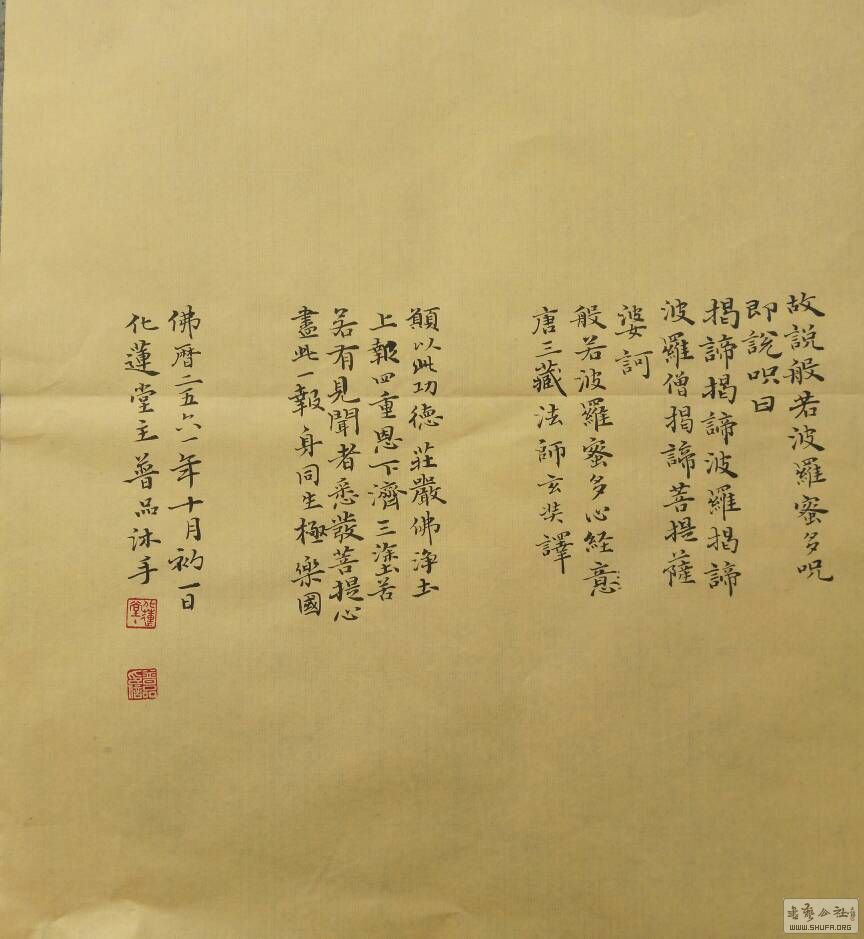 故說般若波羅蜜多呪
即說呪曰
揭諦揭諦波羅揭諦
波羅僧揭諦菩提薩
婆訶
般若波羅蜜多心経意
唐三藏法師玄奘譯
願以此功德莊嚴佛浄土
上報四重恩下濟三塗苦
若有見聞者悉發菩提心
盡此一報身同生極樂國
佛曆二五六一年十月初一日
化蓮堂主普品沐手
化蓮堂
WWW.SHUFA.ORG